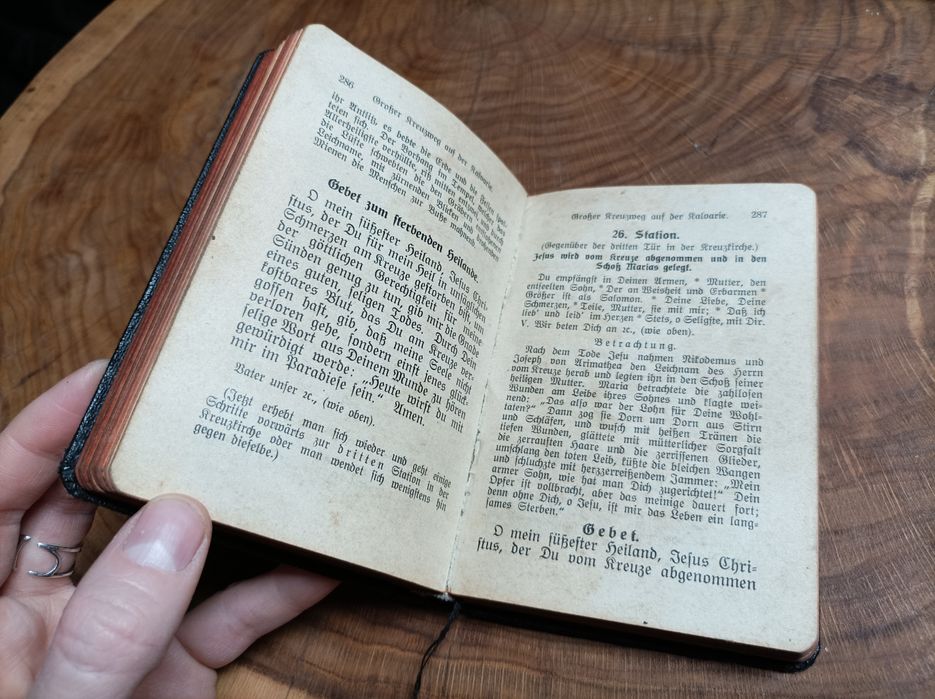 286 Großer Kreuzweg auf der Kalvarie.
ihr Antlitz, es bebte die Erde und die Felsen spal-
teten sich. Der Vorhang im Tempel, welcher das
Allerheiligste verhüllte, riß mitten entzwei, und durch
die Lüfte schwebten die den Gräbern entstiegenen
Leichname, mit zürnenden Blicken und drohenden
Mienen die Menschen zur Buße mahnend.
Gebet zum sterbenden Heilande.
O mein süßester Heiland, Jesus Chri-
stus, der Du für mein Heil in unsäglichen
Schmerzen am Kreuze gestorben bist, um
der göttlichen Gerechtigkeit für meine
Sünden genug zu tun, gib mir die Gnade
eines guten, seligen Todes. Durch Dein
kostbares Blut, das Du am Kreuze ver-
gossen hast, gib, daß meine Seele nicht
verloren gehe, sondern einst jenes glück-
selige Wort aus Deinem Munde zu hören
gewürdigt werde: „Heute wirst du mit
mir im Paradiese sein.“ Amen.
Vater unser ꝛc., (wie oben).
(Jetzt erhebt man sich wieder und geht einige
Schritte vorwärts zur dritten Station in der
Kreuzkirche oder man wendet sich wenigstens hin
gegen dieselbe.)
Großer Kreuzweg auf der Kalvarie. 287
26. Station.
(Gegenüber der dritten Tür in der Kreuzkirche.)
Jesus wird vom Kreuze abgenommen und in den
Schoß Marias gelegt.
Du empfängst in Deinen Armen, * Mutter, den
entseelten Sohn, * Der an Weisheit und Erbarmen *
Größer ist als Salomon. * Deine Liebe, Deine
Schmerzen, * Teile, Mutter, sie mit mir; * Daß ich
lieb' und leid' im Herzen * Stets, o Seligste, mit Dir.
V. Wir beten Dich an ꝛc., (wie oben).
Betrachtung.
Nach dem Tode Jesu nahmen Nikodemus und
Joseph von Arimathea den Leichnam des Herrn
vom Kreuze herab und legten ihn in den Schoß seiner
heiligen Mutter. Maria betrachtete die zahllosen
Wunden am Leibe ihres Sohnes und klagte wei-
nend: „Das also war der Lohn für Deine Wohl-
taten?“ Dann zog sie Dorn um Dorn aus Stirn
und Schläfen, und wusch mit heißen Tränen die
tiefen Wunden, glättete mit mütterlicher Sorgfalt
die zerrauften Haare und die zerrissenen Glieder,
umschlang den toten Leib, küßte die bleichen Wangen
und schluchzte mit herzzerreißendem Jammer: „Mein
armer Sohn, wie hat man Dich zugerichtet!“ Dein
Opfer ist vollbracht, aber das meinige dauert fort;
denn ohne Dich, o Jesu, ist mir das Leben ein lang-
sames Sterben.“
Gebet.
O mein süßester Heiland, Jesus Chri-
stus, der Du vom Kreuze abgenommen